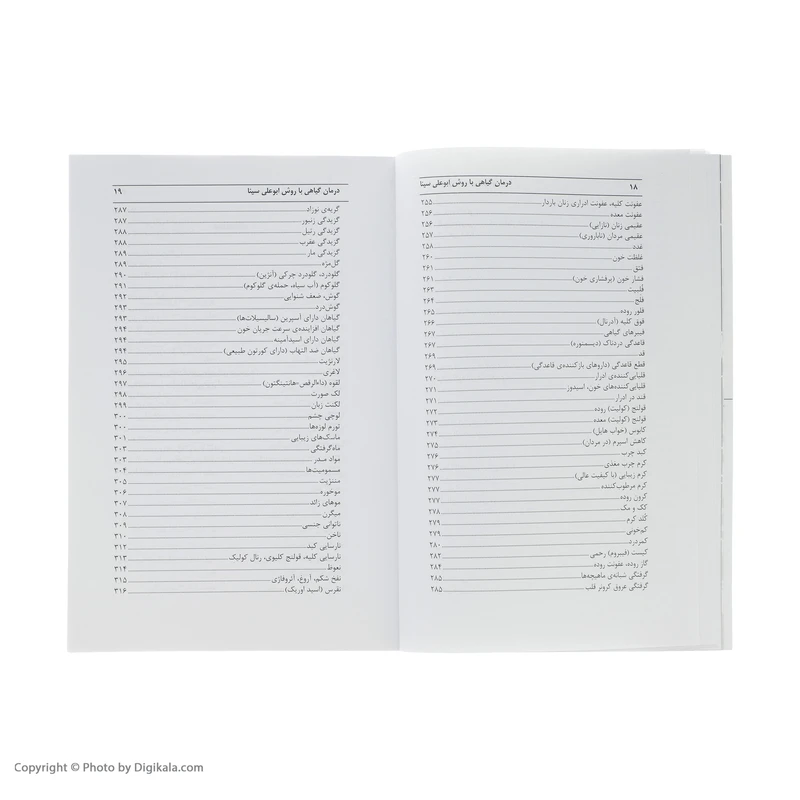 ۱۸ درمان گیاهی با روش ابوعلی سینا
عفونت کلیه، عفونت ادراری زنان باردار ۲۵۵
عفونت معده ۲۵۶
عقیمی زنان (نازایی) ۲۵۶
عقیمی مردان (ناباروری) ۲۵۷
غدد ۲۵۸
غلظت خون ۲۶۰
فتق ۲۶۱
فشار خون (پرفشاری خون) ۲۶۱
فلبیت ۲۶۳
فلج ۲۶۴
فلور روده ۲۶۵
فوق کلیه (آدرنال) ۲۶۶
فیبرهای گیاهی ۲۶۷
قاعدگی دردناک (دیسمنوره) ۲۶۷
قد ۲۶۹
قطع قاعدگی (داروهای بازکننده‌ی قاعدگی) ۲۶۹
قلیایی‌کننده‌ی ادرار ۲۷۰
قلیایی‌کننده‌های خون، اسیدوز ۲۷۱
قند در ادرار ۲۷۱
قولنج (کولیت) روده ۲۷۲
قولنج (کولیت) معده ۲۷۳
کابوس (خواب هایل) ۲۷۴
کاهش اسپرم (در مردان) ۲۷۵
کبد چرب ۲۷۶
کرم چرب مغذی ۲۷۶
کرم زیبایی (با کیفیت عالی) ۲۷۷
کرم مرطوب‌کننده ۲۷۷
کرون روده ۲۷۷
کک و مک ۲۷۸
کلد کرم ۲۷۹
کم‌خونی ۲۷۹
کمردرد ۲۸۰
کیست (فیبروم) رحمی ۲۸۲
گاز روده، عفونت روده ۲۸۴
گرفتگی شبانه‌ی ماهیچه‌ها ۲۸۵
گرفتگی عروق کرونر قلب ۲۸۵
درمان گیاهی با روش ابوعلی سینا ۱۹
گریه‌ی نوزاد ۲۸۷
گزیدگی زنبور ۲۸۷
گزیدگی رتیل ۲۸۸
گزیدگی عقرب ۲۸۸
گزیدگی مار ۲۸۹
گل‌مژه ۲۸۹
گلودرد، گلودرد چرکی (آنژین) ۲۹۰
گلوکوم (آب سیاه، حمله‌ی گلوکوم) ۲۹۱
گوش، ضعف شنوایی ۲۹۲
گوش‌درد ۲۹۳
گیاهان دارای آسپرین (سالیسیلات‌ها) ۲۹۳
گیاهان افزاینده‌ی سرعت جریان خون ۲۹۴
گیاهان دارای اسیدآمینه ۲۹۴
گیاهان ضد التهاب (دارای کورتون طبیعی) ۲۹۴
لارنژیت ۲۹۵
لاغری ۲۹۶
لقوه (داءالرقص=هانتینگتون) ۲۹۷
لک صورت ۲۹۸
لکنت زبان ۲۹۹
لوچی چشم ۳۰۰
لوزه‌ها ۳۰۰
ماسک‌های زیبایی ۳۰۱
ماه‌گرفتگی ۳۰۳
مواد مخدر ۳۰۳
مسمومیت‌ها ۳۰۴
مننژیت ۳۰۵
موخوره ۳۰۶
موهای زائد ۳۰۷
میگرن ۳۰۸
ناتوانی جنسی ۳۰۹
ناخن ۳۱۰
نارسایی کبد ۳۱۲
نارسایی کلیه، قولنج کلیوی، رنال کولیک ۳۱۳
نعوظ ۳۱۴
نفخ شکم، آروغ، آئروفاژی ۳۱۵
نقرس (اسید اوریک) ۳۱۶
Copyright © Photo by Digikala.com